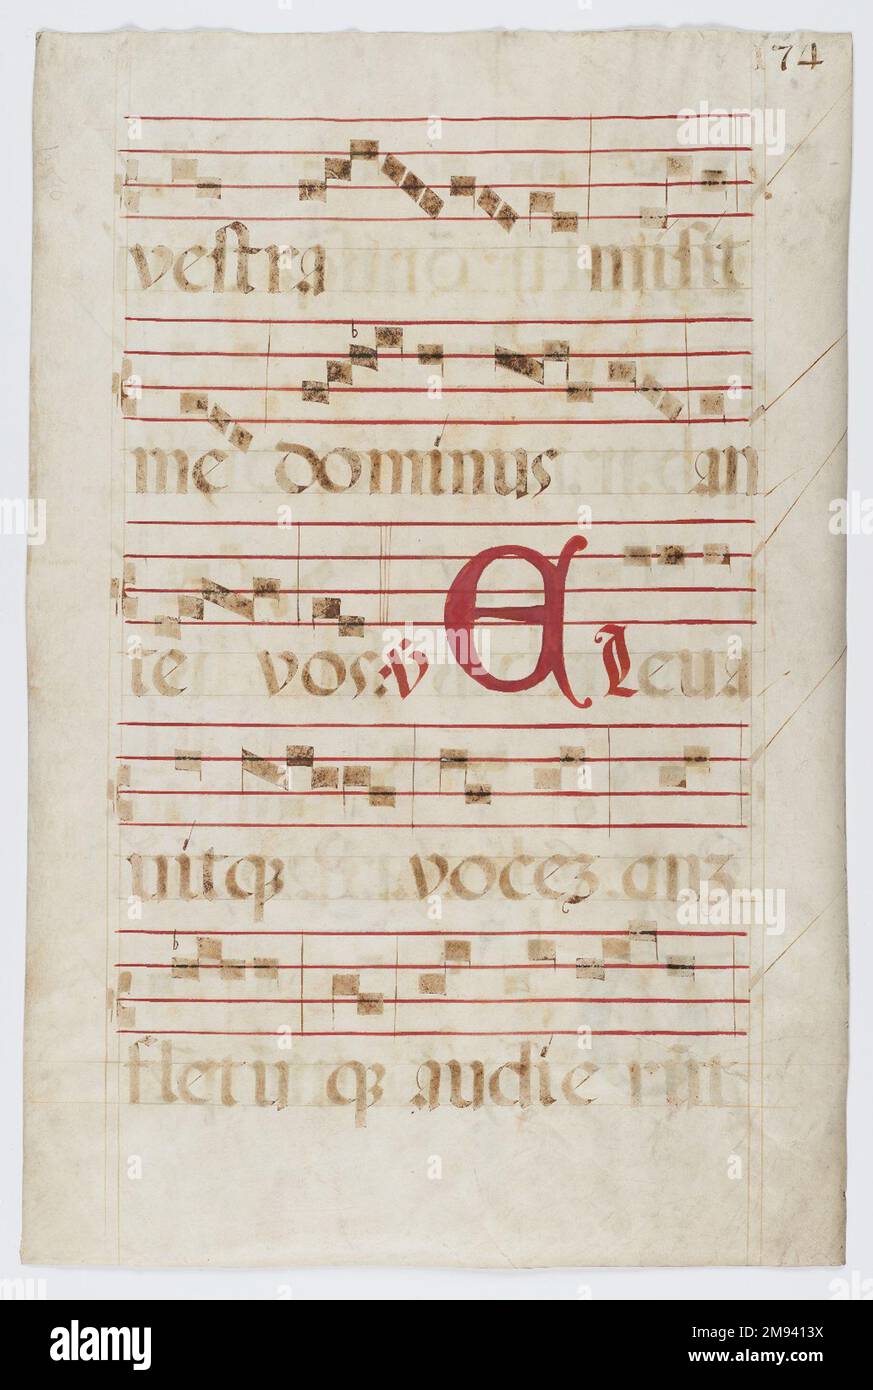 174
vestra misit
me dominus an
te vos: ℣ ELeua
uitqȝ voceȝ cunȝ
fletu qȝ audie rūt
alamy
Image ID: 2M9413X
www.alamy.com